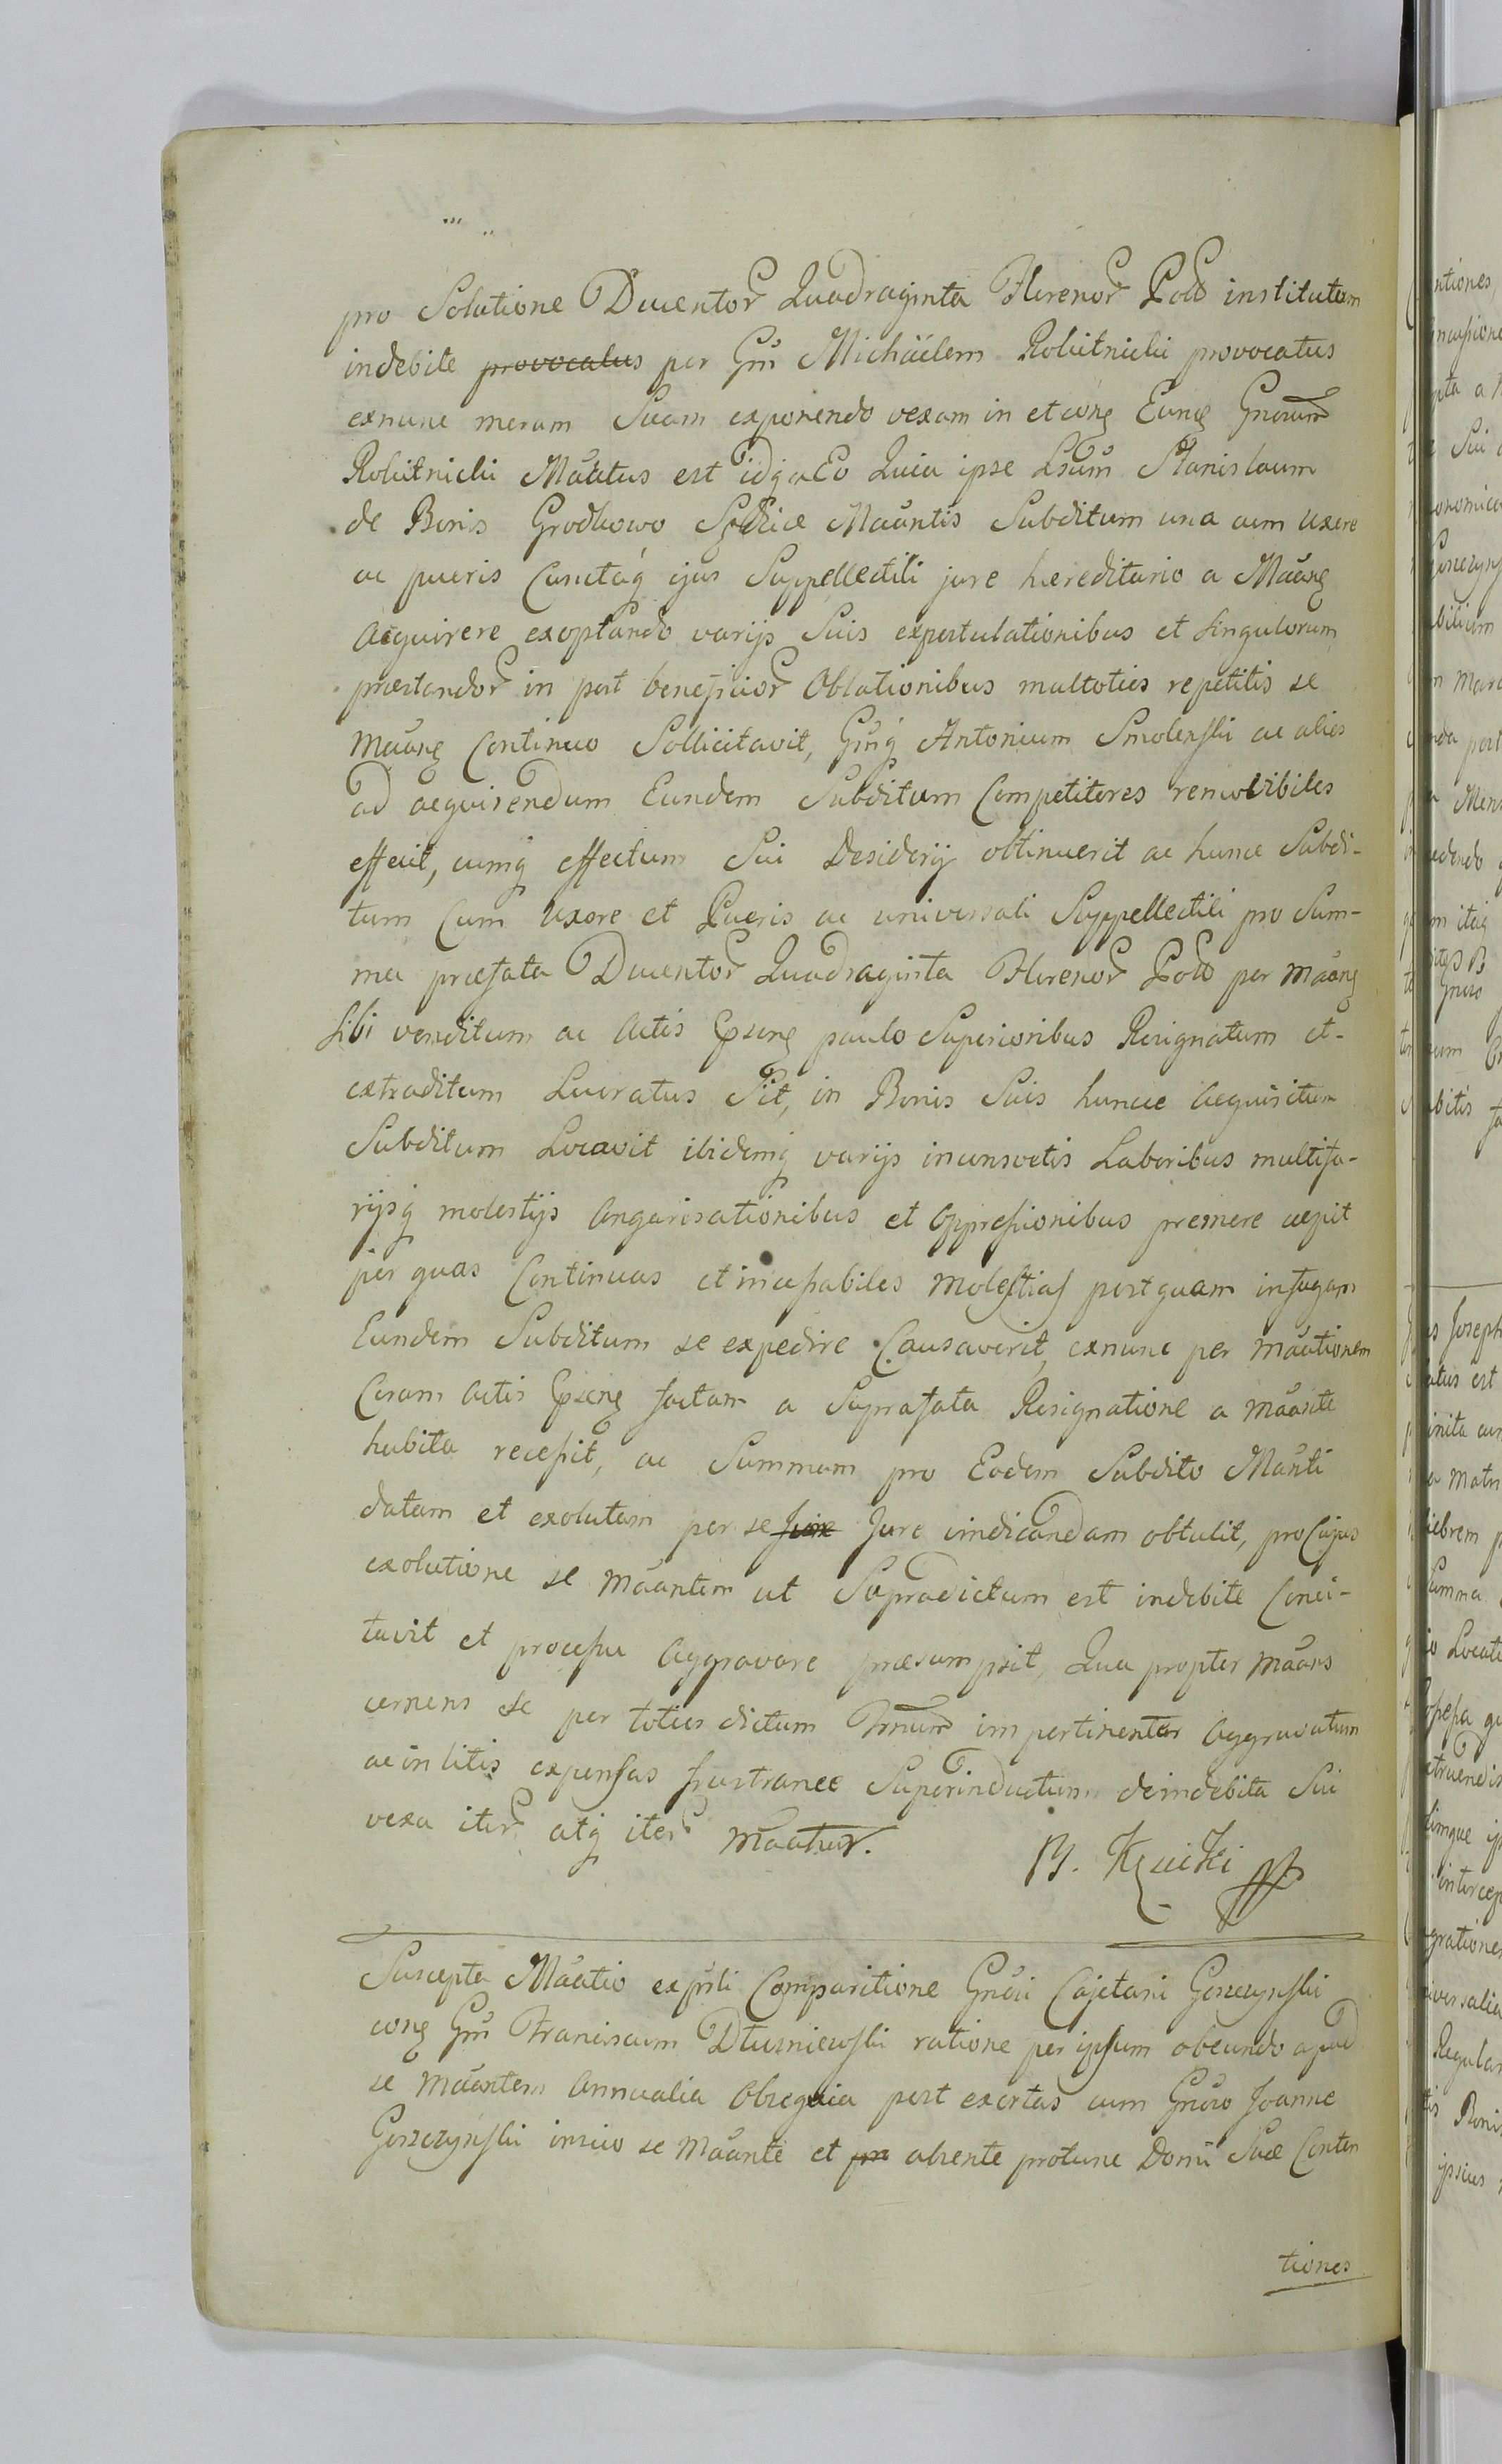 pro Solutione Ducentor Quadraginta Florenor Pol institutam
indebite provocatus per Gm Michäelem Rokitnicki provocatus
exnunc meram Suam exponendo vexam in et cong Eung Gnorum
Rokitnicki Maātus est idq a Eo Quia ipse Lsum Stanislaum
de Bonis Grodkowo Spdice Maāntis Subditum una cum Uxore
ac pueris Cunctáq ejus Suppellectili jure hereditario a Maāng
Acquirere exoptando varijs Suis expostulationibus et Singulorum
præstandor in post beneficior Oblationibus multoties repetitis se
Maāng Continuo Sollicitavit, Gmq Antonium Smolenski ac alios
ad acquirendum Eundem Subditum Competitores removibiles
effecit, cumq effectum Sui Desiderij obtinuerit ac hunce Subdi-
tum Cum Uxore et Pueris ac universali Suppellectili pro Sum-
ma præfata Ducentor Quadraginta Florenor Pol per Maāng
Sibi venditum ac Actis Epseng paulo Superioribus Resignatum et-
extraditum Lucratus Sit, in Bonis Suis hunce Acquisitum
Subditum Locavit ibidemq varijs inconsvetis Laboribus multifa-
rijsq molestijs Angarisationibus et Oppressionibus premere cæpit
per quas Continuas et incessabiles Molestias postquam in fugam
Eundem Subditum se expedire Causaverit, exnunc per Maātionem
Coram Actis Epseng factam a Suprafata Resignatione a Maānte
habita recessit, ac Summam pro Eodem Subdito Maānti
datam et exolutam per se Jure Jure vindicandam obtulit, pro Cujus
exolutione se Maāntem ut Supradictum est indebite Conci-
tavit et processu Aggravare præsumpsit, Qua propter Maāns
cernens se per toties dictum impertinenter Aggravatum
ac in litis expensas frustranee Superinductum de indebita Sui
vexa iter atq iter Maātur.
Suscepta Maātio ex prsti Comparitione Gnsii Cajetani Goszczynski
cong Gm Franciscum Dłuzniewski ratione per ipsum obeundo apud
se Maāntem Annualia Obsequia post exortas cum Gnoso Joanne
Goszczynski inscio se Maānte et pn absente protunc Domi Suæ Conten
tiones